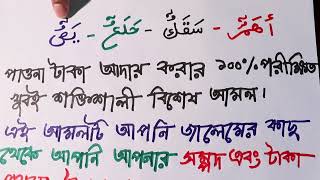 أَهَمٌّ - سَقَكٌ - حَلَعٌ - يَقٌ
পাওনা টাকা আদায় করার ১০০% পরীক্ষিত
খুবই শক্তিশালী বিশেষ আমল।
এই আমলটি আপনি জালেমের কাছ
থেকে আপনি আপনার সম্পদ এবং টাকা